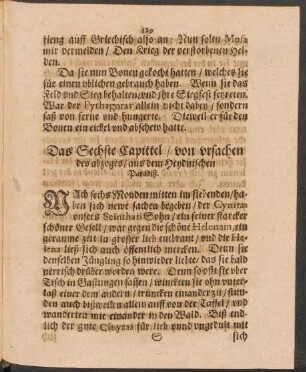 129
fieng auff Griechisch also an: Nun solin Musa
mir vermelden / Den Krieg der verstorbenen Hel-
den.
Da sie nun Bonen gekocht hatten / welches sie
für einen üblichen gebrauch haben. Wenn sie das
Feld und Sieg behalten / und ihr Siegfest feyreten.
War der Pythagoras allein nicht dabey / sondern
saß von ferne und hungerte. Dieweil er für den
Bonen ein eickel und abschew hatte.
Das Sechste Capittel / von ursachen
des abzoges / aus dem Heydnischen
Paradiß.
NAch sechs Monden mitten im siebenden / ha-
ben sich newe sachen begeben / der Cynira
unsers Scinthari Sohn / ein feiner starcker
schöner Gesell / war gegen die schöne Helenam ein
geraume zeit in grosser lieb entbrant / und die He-
lena ließ sich auch öffentlich mercken. Denn sie
denselben Jüngling so hinwieder liebte / das sie bald
närrisch drüber worden were. Denn so offt sie uber
Tisch in Gastungen sassen / winckten sie ohn unter-
laß einer dem andern / trüncken einander zu / stun-
den auch bißweiln allein auff von der Taffel / und
wanderten mit einander in den Wald. Biß end-
lich der gute Cinyras für lieb und ungedult mit
S sich